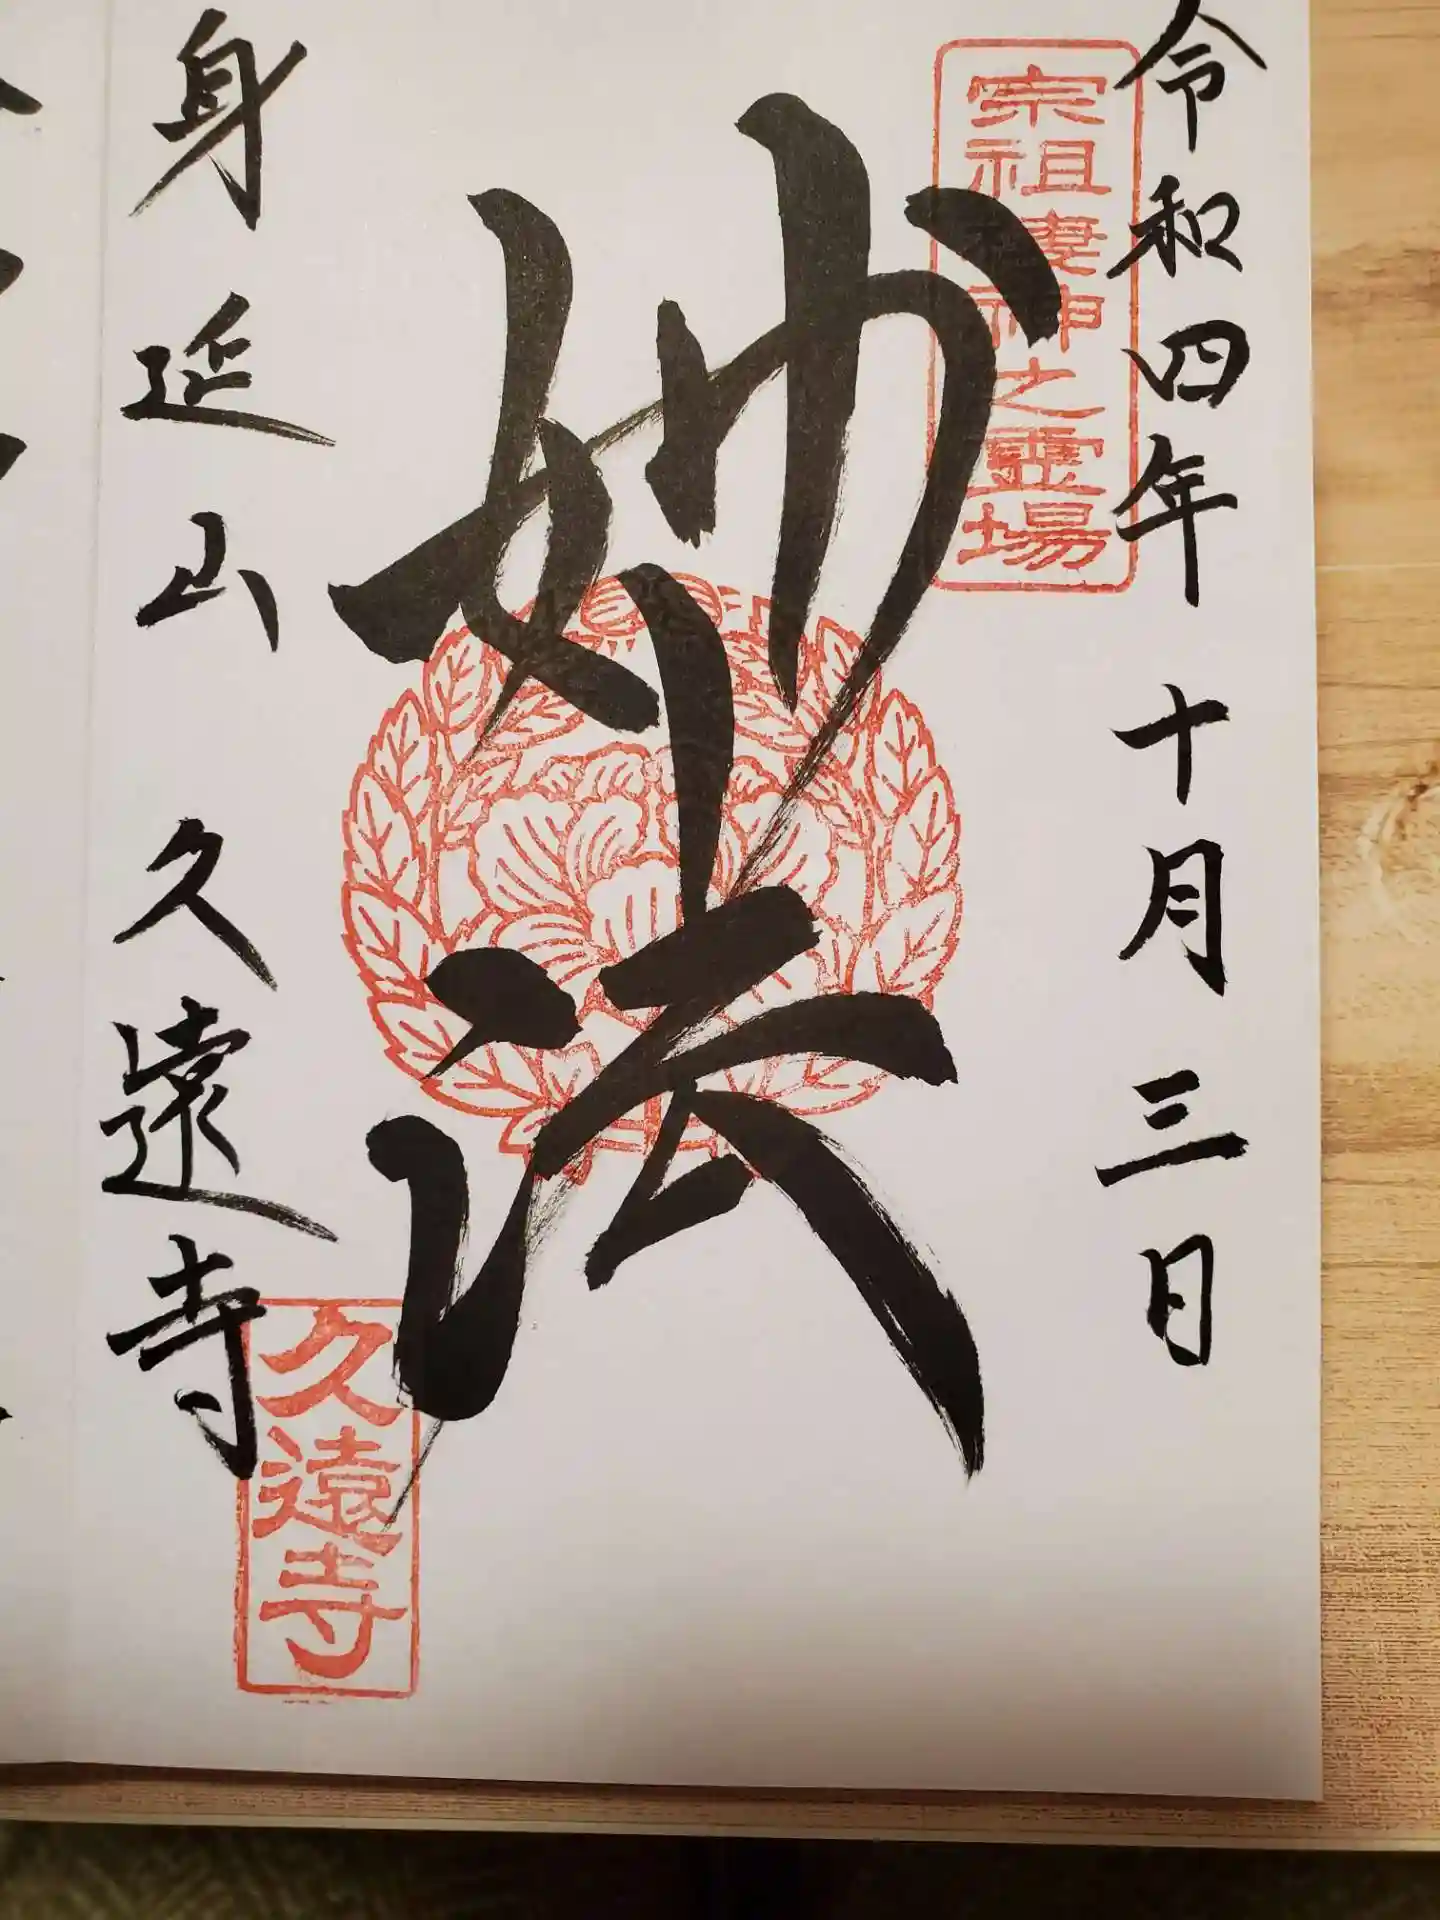 令和四年十月三日
宗祖棲神之霊場
妙法
身延山久遠寺
久遠寺